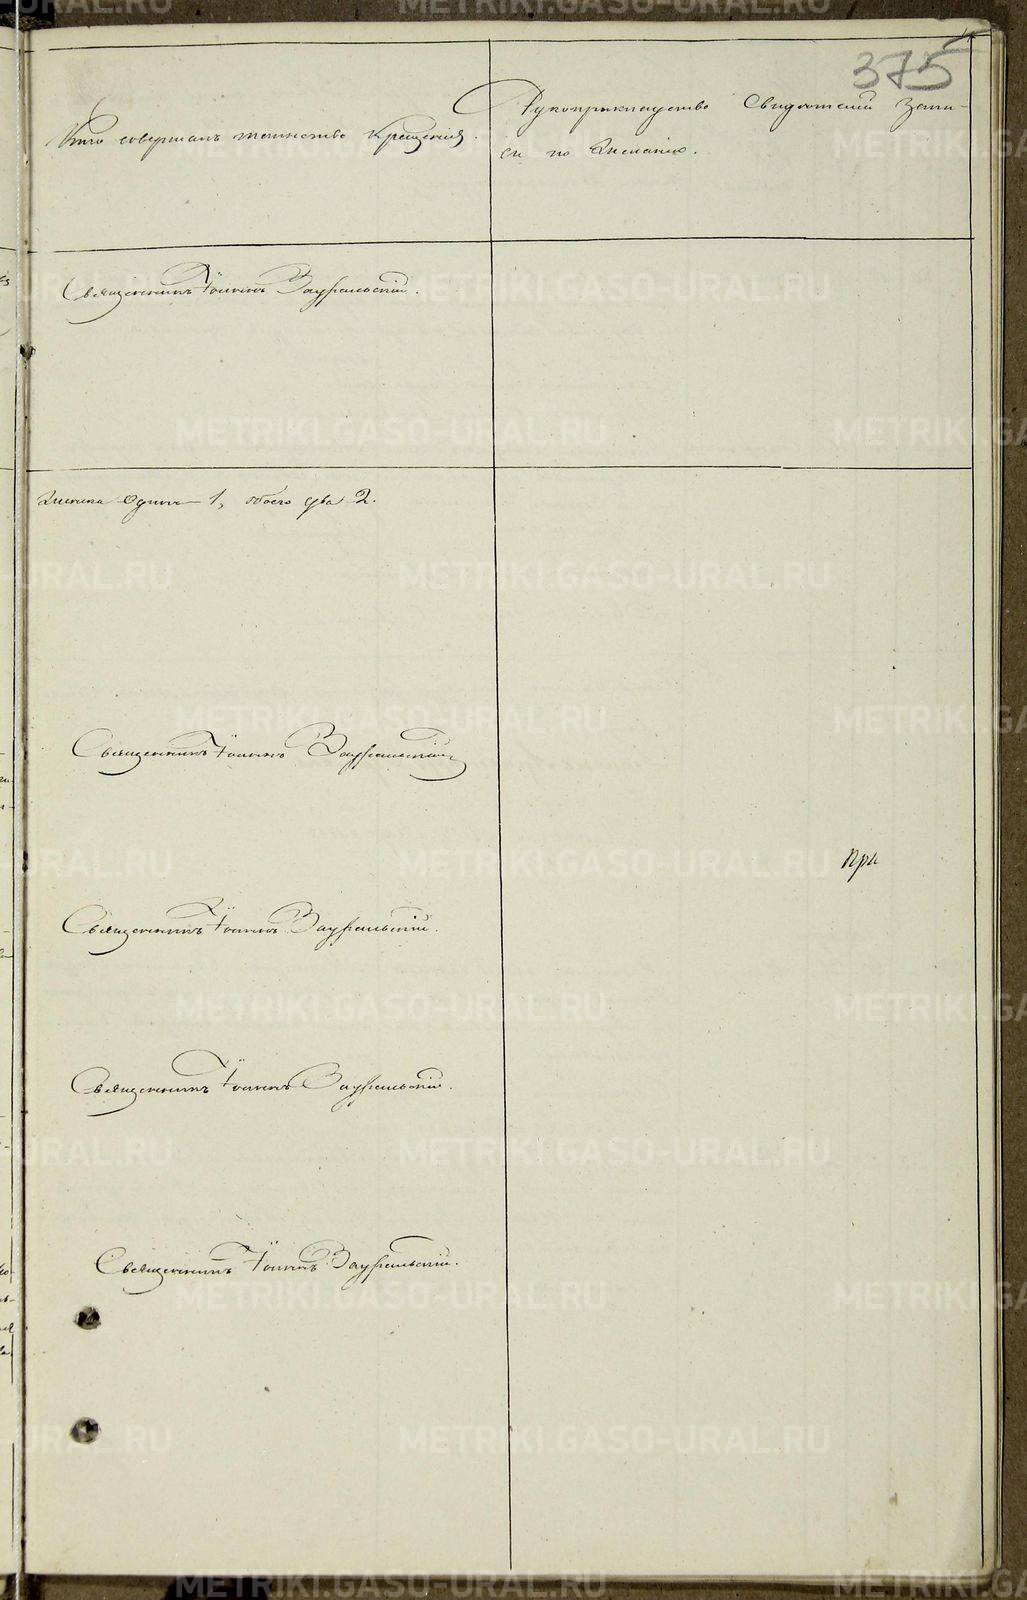 375
Кто совершалъ таинство крещенія.
Рукоприкладство свидѣтелей запи-
си по желанію.
Священникъ Іоаннъ Зауральскій.
женска одинъ 1, обоего два 2.
Священникъ Іоаннъ Зауральскій
при
Священникъ Іоаннъ Зауральскій.
Священникъ Іоаннъ Зауральскій.
Священникъ Іоаннъ Зауральскій.
METRIKI.GASO-URAL.RU